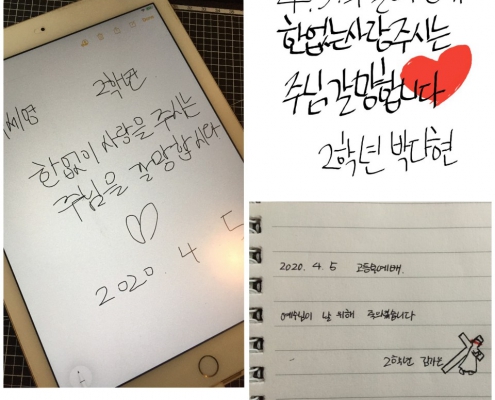 2학년
세영
한없이 사랑을 주시는
주님을 갈망합시다
2020. 4 5
한없는사랑주시는
주님 갈망합니다
2학년 박다현
2020. 4. 5 고등부예배.
예수님이 날 위해 죽으셨습니다
2학년